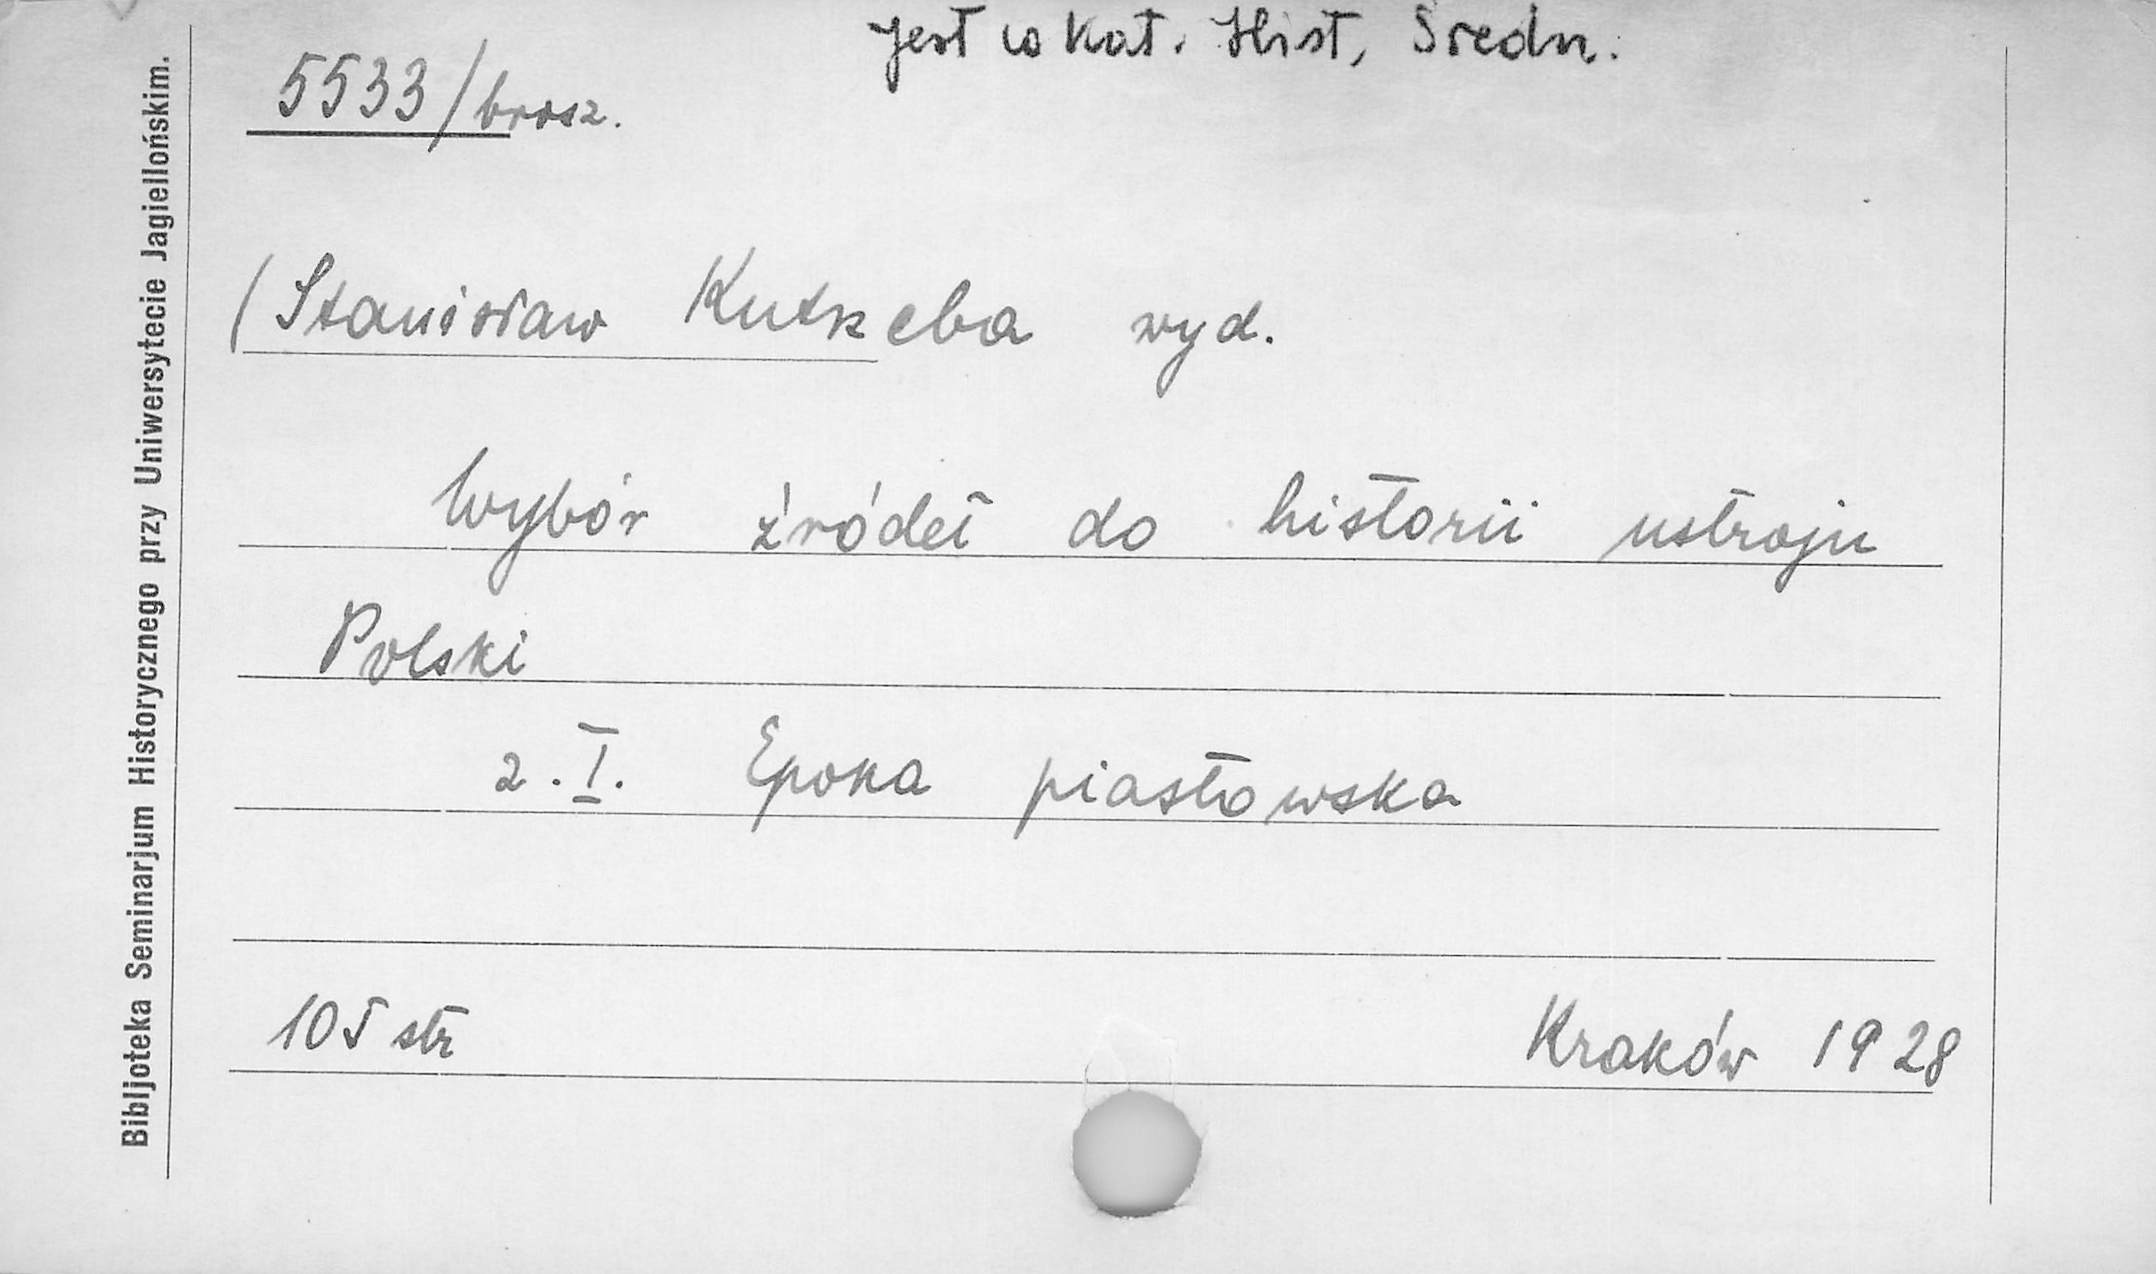 Jest w Kat. Hist, Średn.
5533/brosz.
(Stanisław Kutrzeba wyd.
Wybór źródeł do historii ustroju
Polski
z. I. Epoka piastowska
105 str
Kraków 1928
Bibljoteka Seminarjum Historycznego przy Uniwersytecie Jagiellońskim.